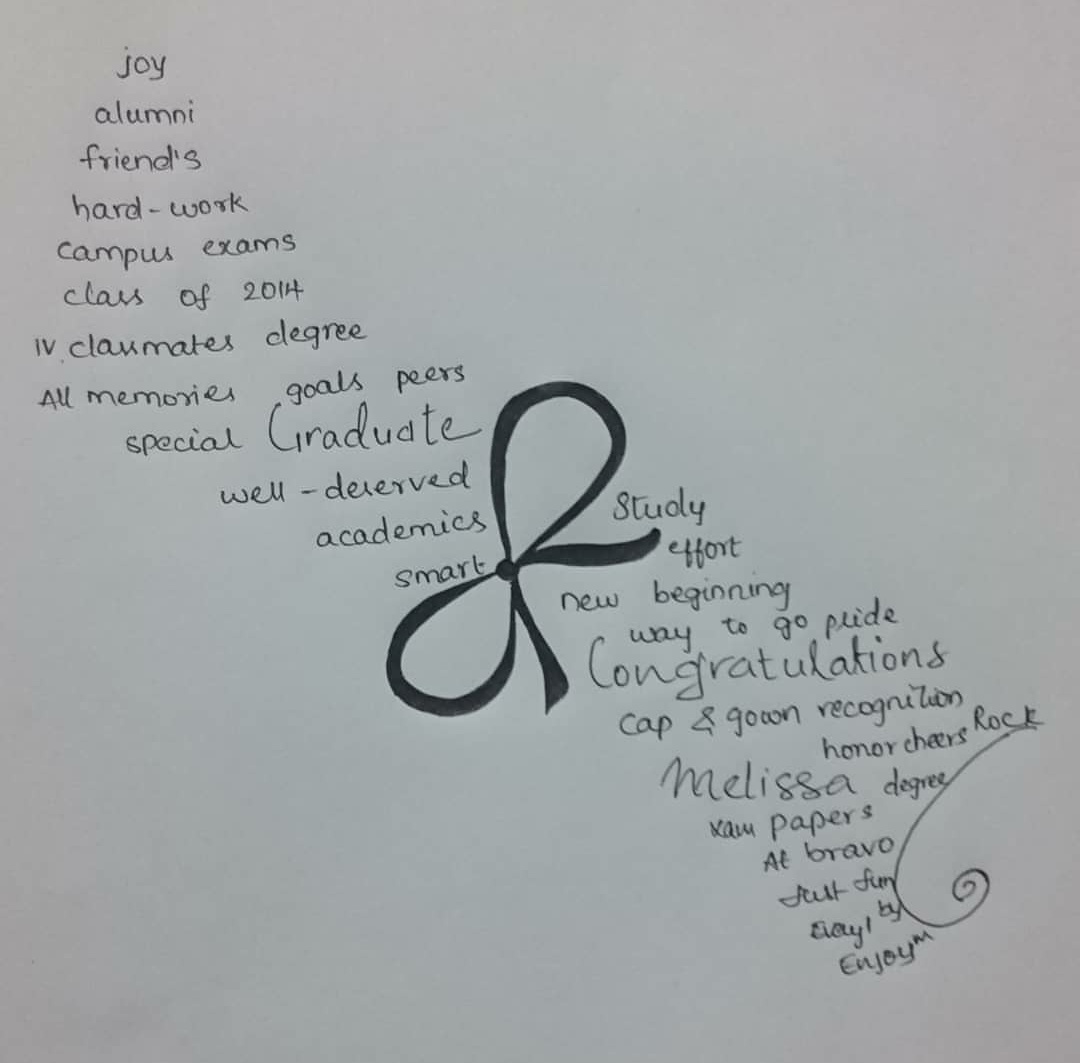 joy
alumni
friend's
hard-work
campus exams
class of 2014
IV classmates degree
All memories goals peers
special Graduate
well-deserved
academics
smart
Study
effort
new beginning
way to go pride
Congratulations
cap & gown recognition
honor cheers Rock
Melissa degree
xam papers
At bravo
Just fun
by
Enjoy